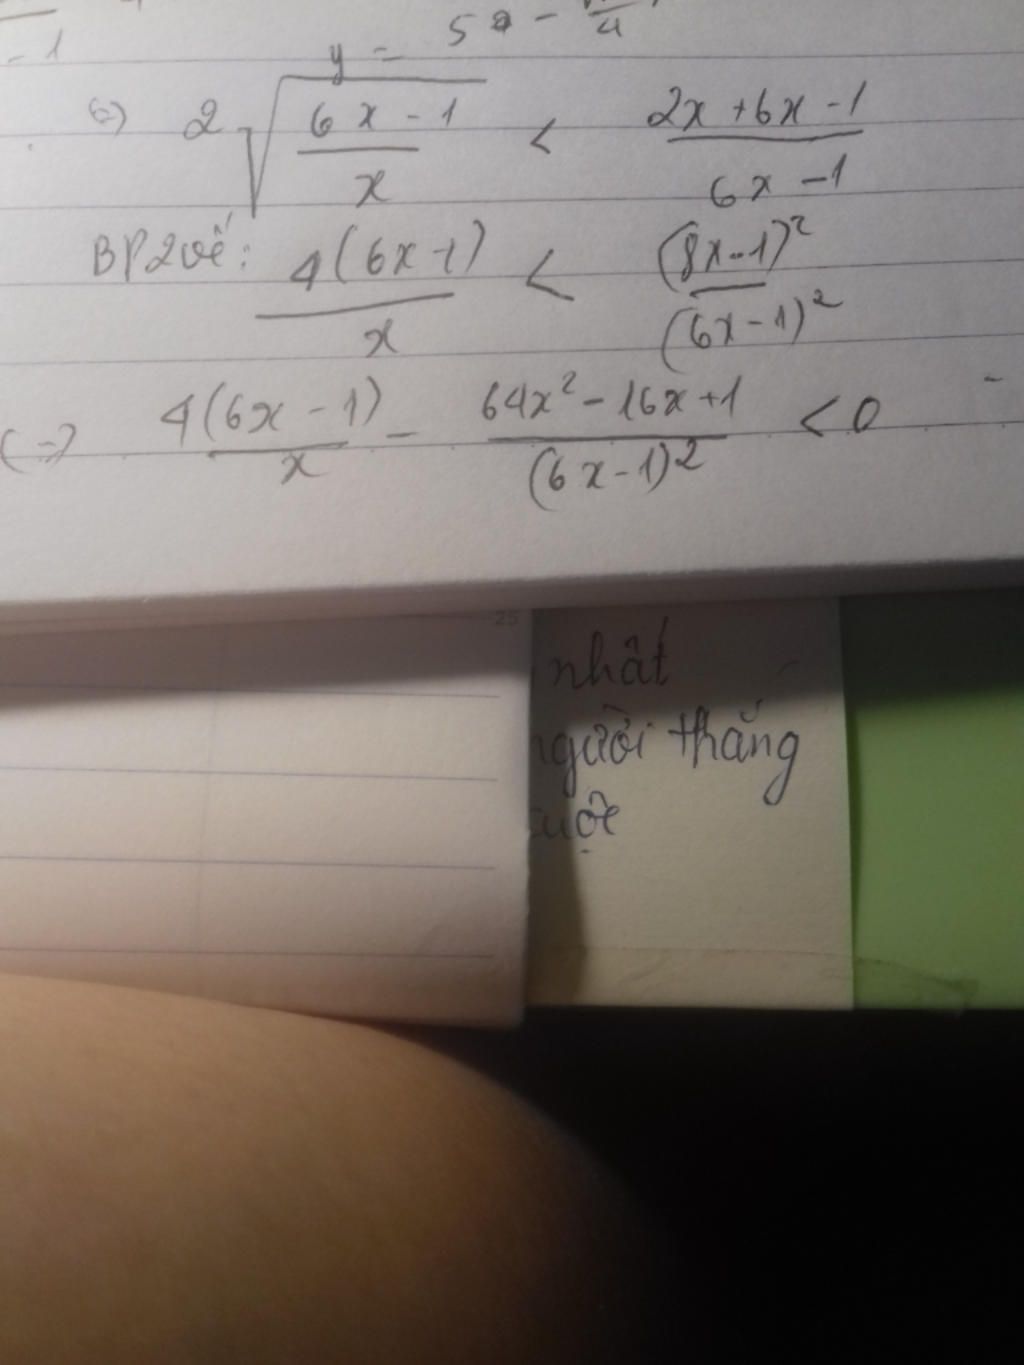 - 1
y = 5 - π/4
c) 2√((6x - 1)/x) < (2x + 6x - 1)/(6x - 1)
BP2vế: 4(6x - 1)/x < (8x - 1)²/(6x - 1)²
<=> 4(6x - 1)/x - (64x² - 16x + 1)/(6x - 1)² < 0
25
nhất
người thắng
cuộc